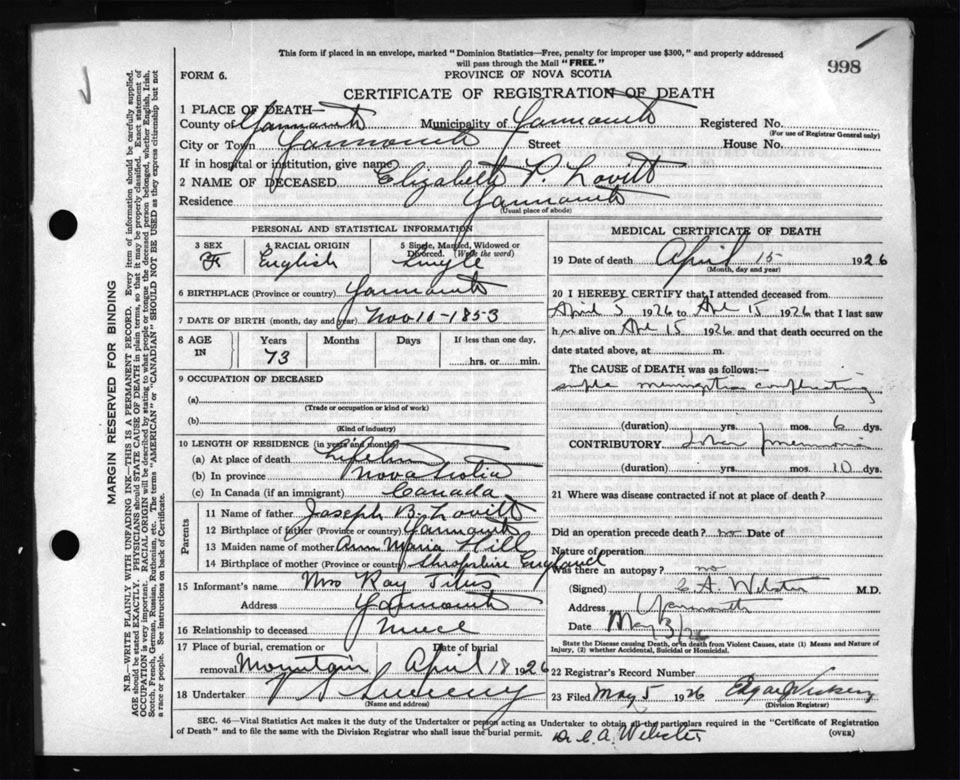 This form if placed in an envelope, marked "Dominion Statistics—Free, penalty for improper use $300," and properly addressed
will pass through the Mail "FREE."
998
FORM 6.
PROVINCE OF NOVA SCOTIA
CERTIFICATE OF REGISTRATION OF DEATH
1 PLACE OF DEATH—
County of Yarmouth Municipality of Yarmouth Registered No.
(For use of Registrar General only)
City or Town Yarmouth Street House No.
If in hospital or institution, give name
2 NAME OF DECEASED Elizabeth P. Lovitt
Residence Yarmouth
(Usual place of abode)
PERSONAL AND STATISTICAL INFORMATION
3 SEX 4 RACIAL ORIGIN 5 Single, Married, Widowed or
Divorced. (Write the word)
F English Single
6 BIRTHPLACE (Province or country) Yarmouth
7 DATE OF BIRTH (month, day and year) Nov 10-1853
8 AGE Years Months Days If less than one day,
IN 73 hrs. or min.
9 OCCUPATION OF DECEASED
(a)
(Trade or occupation or kind of work)
(b)
(Kind of industry)
10 LENGTH OF RESIDENCE (in years and months)
(a) At place of death Lifetime
(b) In province Nova Scotia
(c) In Canada (if an immigrant) Canada
Parents
11 Name of father Joseph B. Lovitt
12 Birthplace of father (Province or country) Yarmouth
13 Maiden name of mother Ann Maria Hill
14 Birthplace of mother (Province or country) Shropshire England
15 Informant's name Mrs Ray Titus
Address Yarmouth
16 Relationship to deceased Niece
17 Place of burial, cremation or Date of burial
removal Mountain April 18 1926
18 Undertaker V J Sweeney
(Name and address)
MEDICAL CERTIFICATE OF DEATH
19 Date of death April 15 1926
(Month, day and year)
20 I HEREBY CERTIFY that I attended deceased from
April 5 1926 to Apl 15 1926 that I last saw
h alive on Apl 15 1926 and that death occurred on the
date stated above, at m.
The CAUSE of DEATH was as follows:—
(duration) yrs. mos. 6 dys.
CONTRIBUTORY
(duration) yrs. mos. 10 dys.
21 Where was disease contracted if not at place of death?
Did an operation precede death? no Date of
Nature of operation
Was there an autopsy? no
(Signed) C A Webster M.D.
Address Yarmouth
Date May 3/26
State the Disease causing Death, or in death from Violent Causes, state (1) Means and Nature of
Injury, (2) whether Accidental, Suicidal or Homicidal.
22 Registrar's Record Number
23 Filed May 5 1926
(Division Registrar)
SEC. 46—Vital Statistics Act makes it the duty of the Undertaker or person acting as Undertaker to obtain all the particulars required in the "Certificate of Registration
of Death" and to file the same with the Division Registrar who shall issue the burial permit.
Dr. C. A. Webster
(OVER)
MARGIN RESERVED FOR BINDING
N.B.—WRITE PLAINLY WITH UNFADING INK—THIS IS A PERMANENT RECORD. Every item of information should be carefully supplied.
AGE should be stated EXACTLY. PHYSICIANS should STATE CAUSE OF DEATH in plain terms, so that it may be properly classified. Exact statement of
OCCUPATION is very important. RACIAL ORIGIN will be described by stating to what people or tongue the deceased person belonged, whether English, Irish,
Scotch, French, German, Russian, Ruthenian, etc. The terms "AMERICAN" or "CANADIAN" SHOULD NOT BE USED as they express citizenship but not
a race or people. See instructions on back of Certificate.